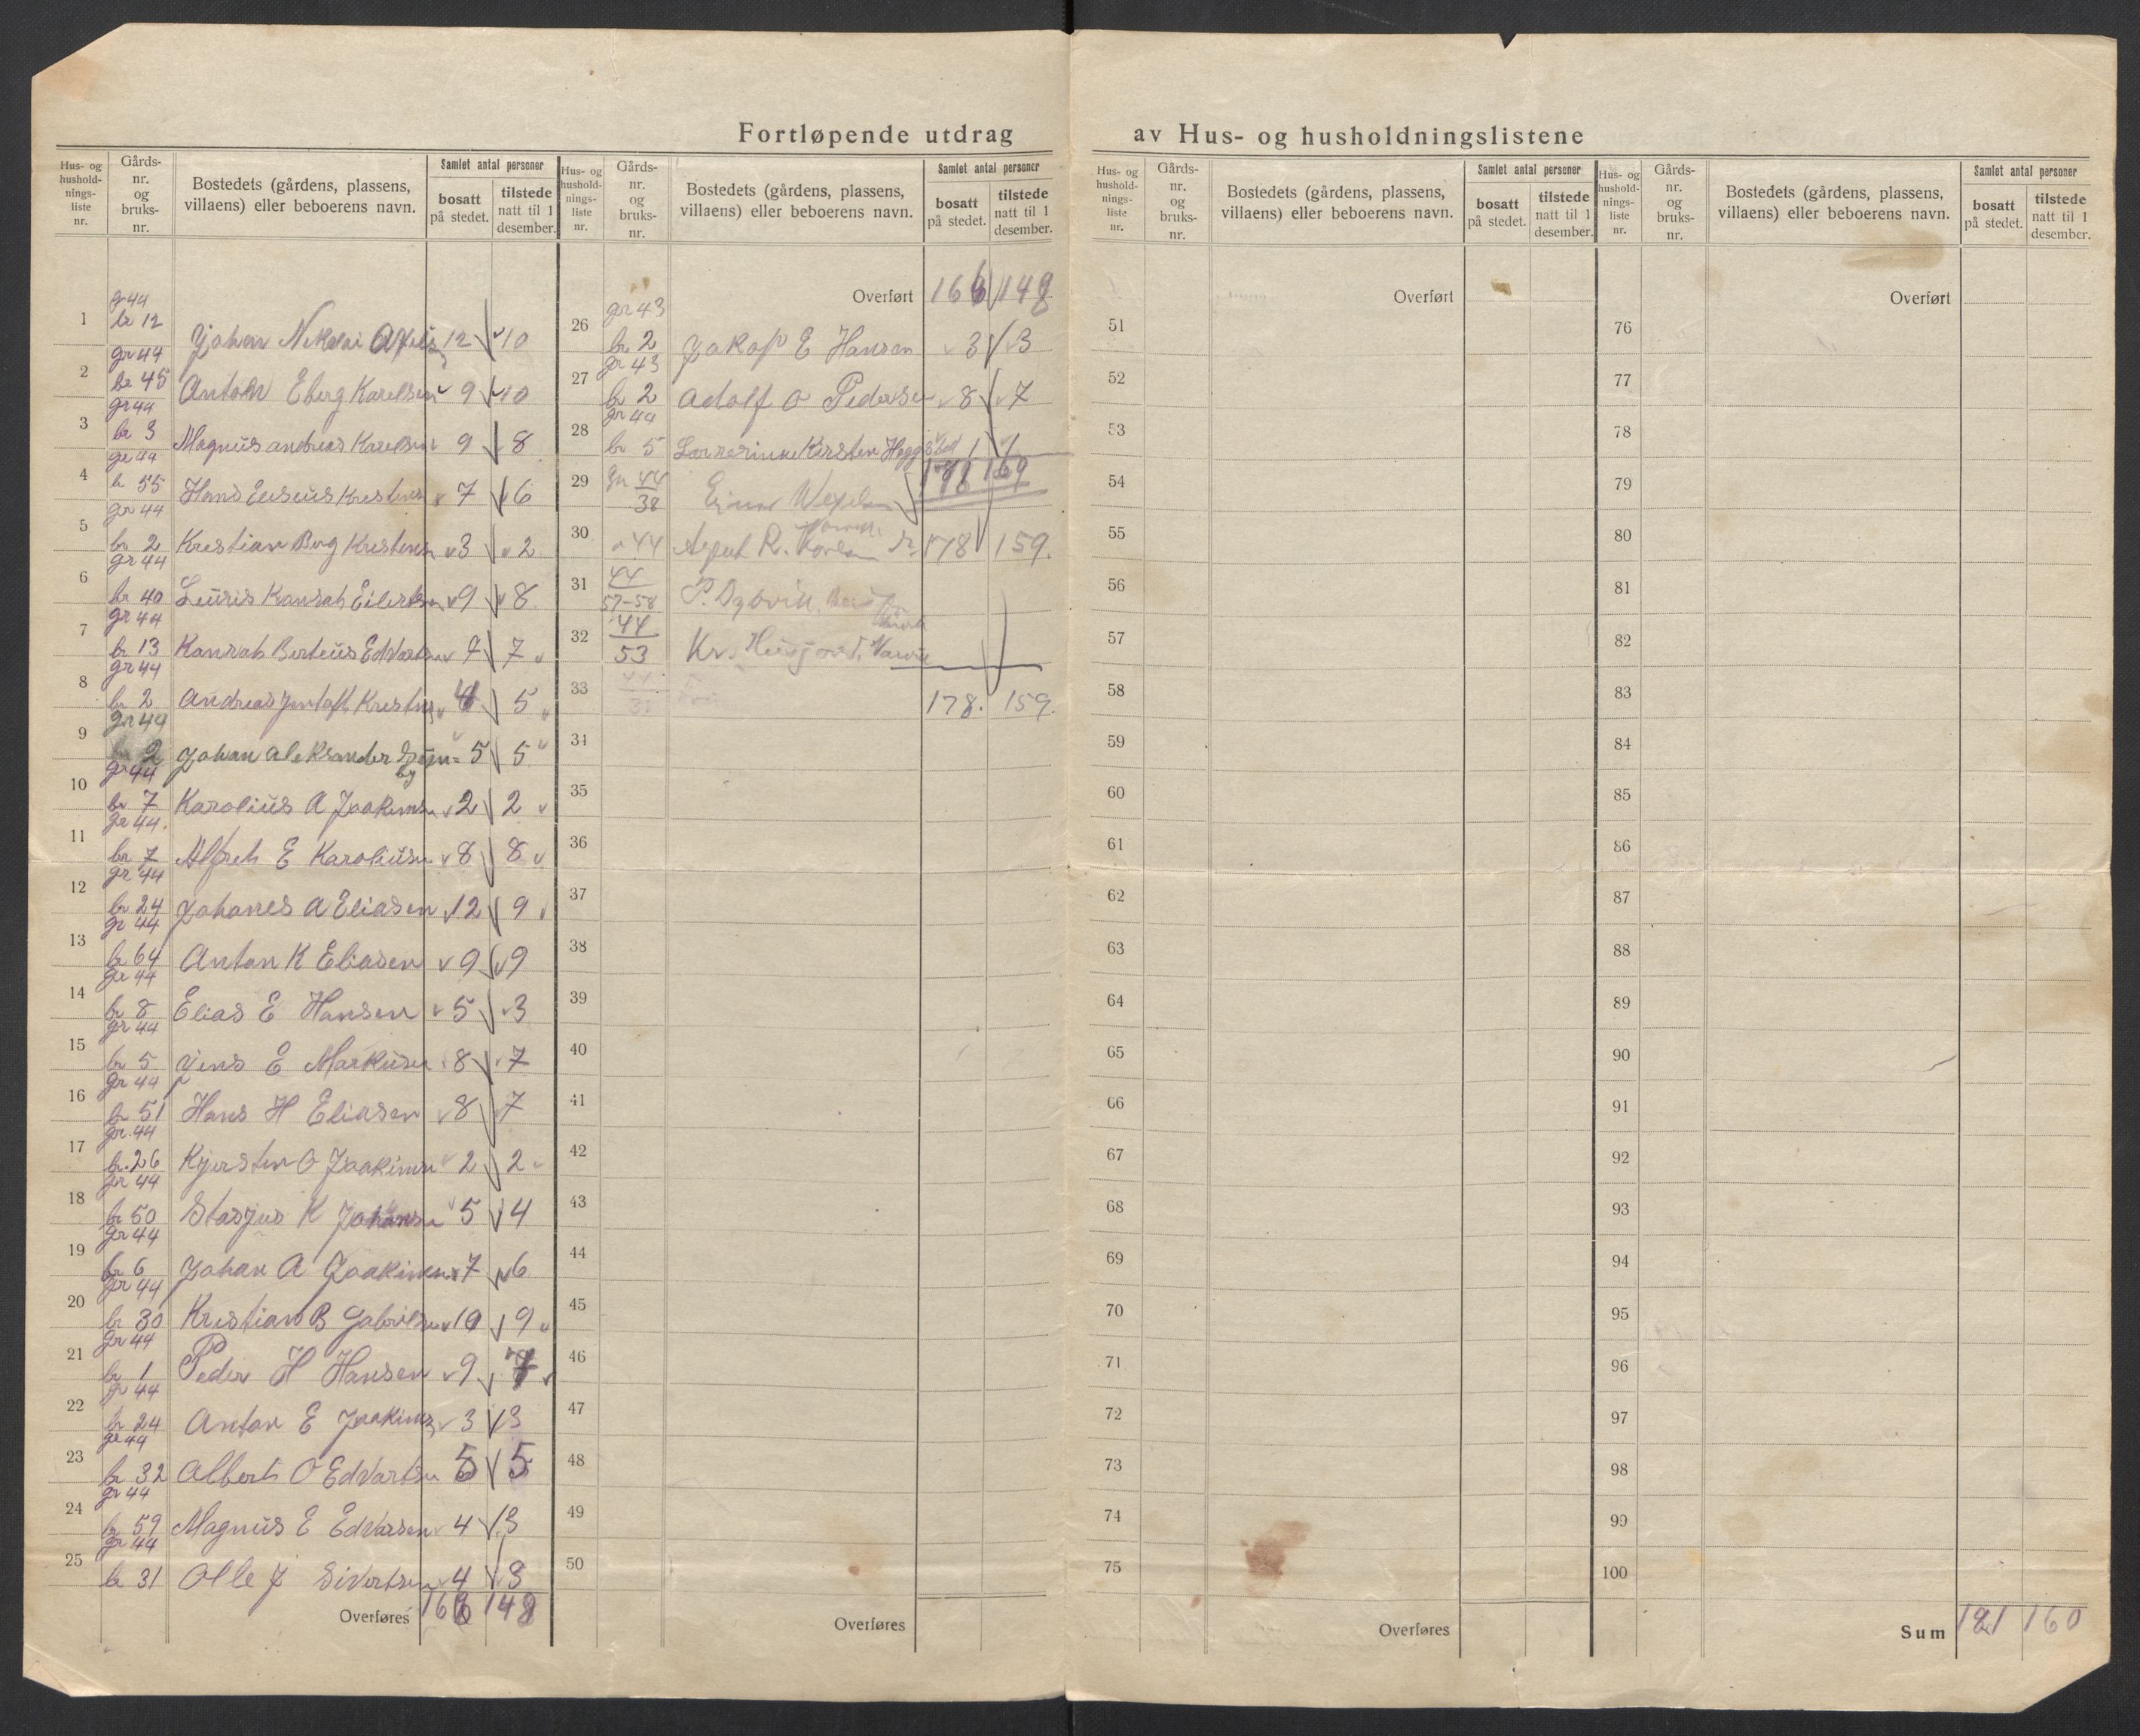 Fortløpende utdrag av Hus- og husholdningslistene
Hus- og husholdningsliste nr. Gårdsnr. og bruksnr. Bostedets (gårdens, plassens, villaens) eller beboerens navn. Samlet antal personer bosatt på stedet. tilstede natt til 1 desember.
1 gr 44 br 12 Johan Nikolai 12 10
2 gr 44 br 45 Antohn Eberg Karelsen 9 10
3 gr 44 br 3 Magnus andreas Karelsen 9 8
4 gr 44 br 55 Hans Eliseus 7 6
5 gr 44 br 2 Krestian Berg Krestens 3 2
6 gr 44 br 40 Leuris Kanrah Eilertsen 9 8
7 gr 44 br 13 Kanrah Berteus Edvartsen 7
8 gr 44 br 2 Andreas 4 5
9 gr 44 br 2 Johan aleksander 5 5
10 gr 44 br 7 Karolius A Joakimsen 2 2
11 gr 44. br 7 Alfreh E Karoliusen 8 8
12 gr 44 br 24 Johanes A Eliasen 12 9
13 gr 44 br 64 Anton K Eliasen 9 9
14 gr 44 br 8 Elias E Hansen 5 3
15 gr 44 br 5 Jens E Markusen 8 7
16 gr 44 br 51 Hans H Eliasen 8 7
17 gr. 44 br. 26 Kjersten O Joakimsen 2 2
18 gr 44 br 50 Stasjus K 5 4
19 gr 44 br 6 Johan A Joakimsen 7 6
20 gr 44 br 30 Kristian B Gabrielsen 10 9
21 gr 44 br 1 Peder H Hansen 9 7
22 gr 44 br 24 Anton E Joakims 3 3
23 gr 44 br 32 Albert O Edvartsen 5 5
24 gr 44 br 59 Magnus E Edvarsen 4 3
25 gr 44 br 31 Olle J Sivertsen 4 3
Overføres 166 148
Hus- og husholdningsliste nr. Gårdsnr. og bruksnr. Bostedets (gårdens, plassens, villaens) eller beboerens navn. Samlet antal personer bosatt på stedet. tilstede natt til 1 desember.
Overført 166 148
26 gr 43 br 2 Jakop E Hansen 3 3
27 gr 43 br 2 Adolf O Pedersen 8 7
28 gr 44 br 5 Kersten 1 1
29 gr 44 38 Einar
30 44 178 159.
31 44 57-58
32 44 53 Kr.
33 178. 159.
34
35
36
37
38
39
40
41
42
43
44
45
46
47
48
49
50
Overføres
Hus- og husholdningsliste nr. Gårdsnr. og bruksnr. Bostedets (gårdens, plassens, villaens) eller beboerens navn. Samlet antal personer bosatt på stedet. tilstede natt til 1 desember.
Overført
51
52
53
54
55
56
57
58
59
60
61
62
63
64
65
66
67
68
69
70
71
72
73
74
75
Overføres
Hus- og husholdningsliste nr. Gårdsnr. og bruksnr. Bostedets (gårdens, plassens, villaens) eller beboerens navn. Samlet antal personer bosatt på stedet. tilstede natt til 1 desember.
Overført
76
77
78
79
80
81
82
83
84
85
86
87
88
89
90
91
92
93
94
95
96
97
98
99
100
Sum 181 160